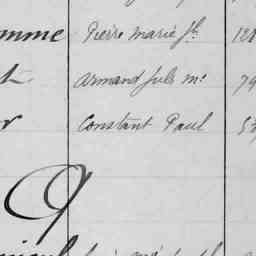 omme Pierre marie fs. 128
t armand Jules me. 79
r Constant Paul 53
Q